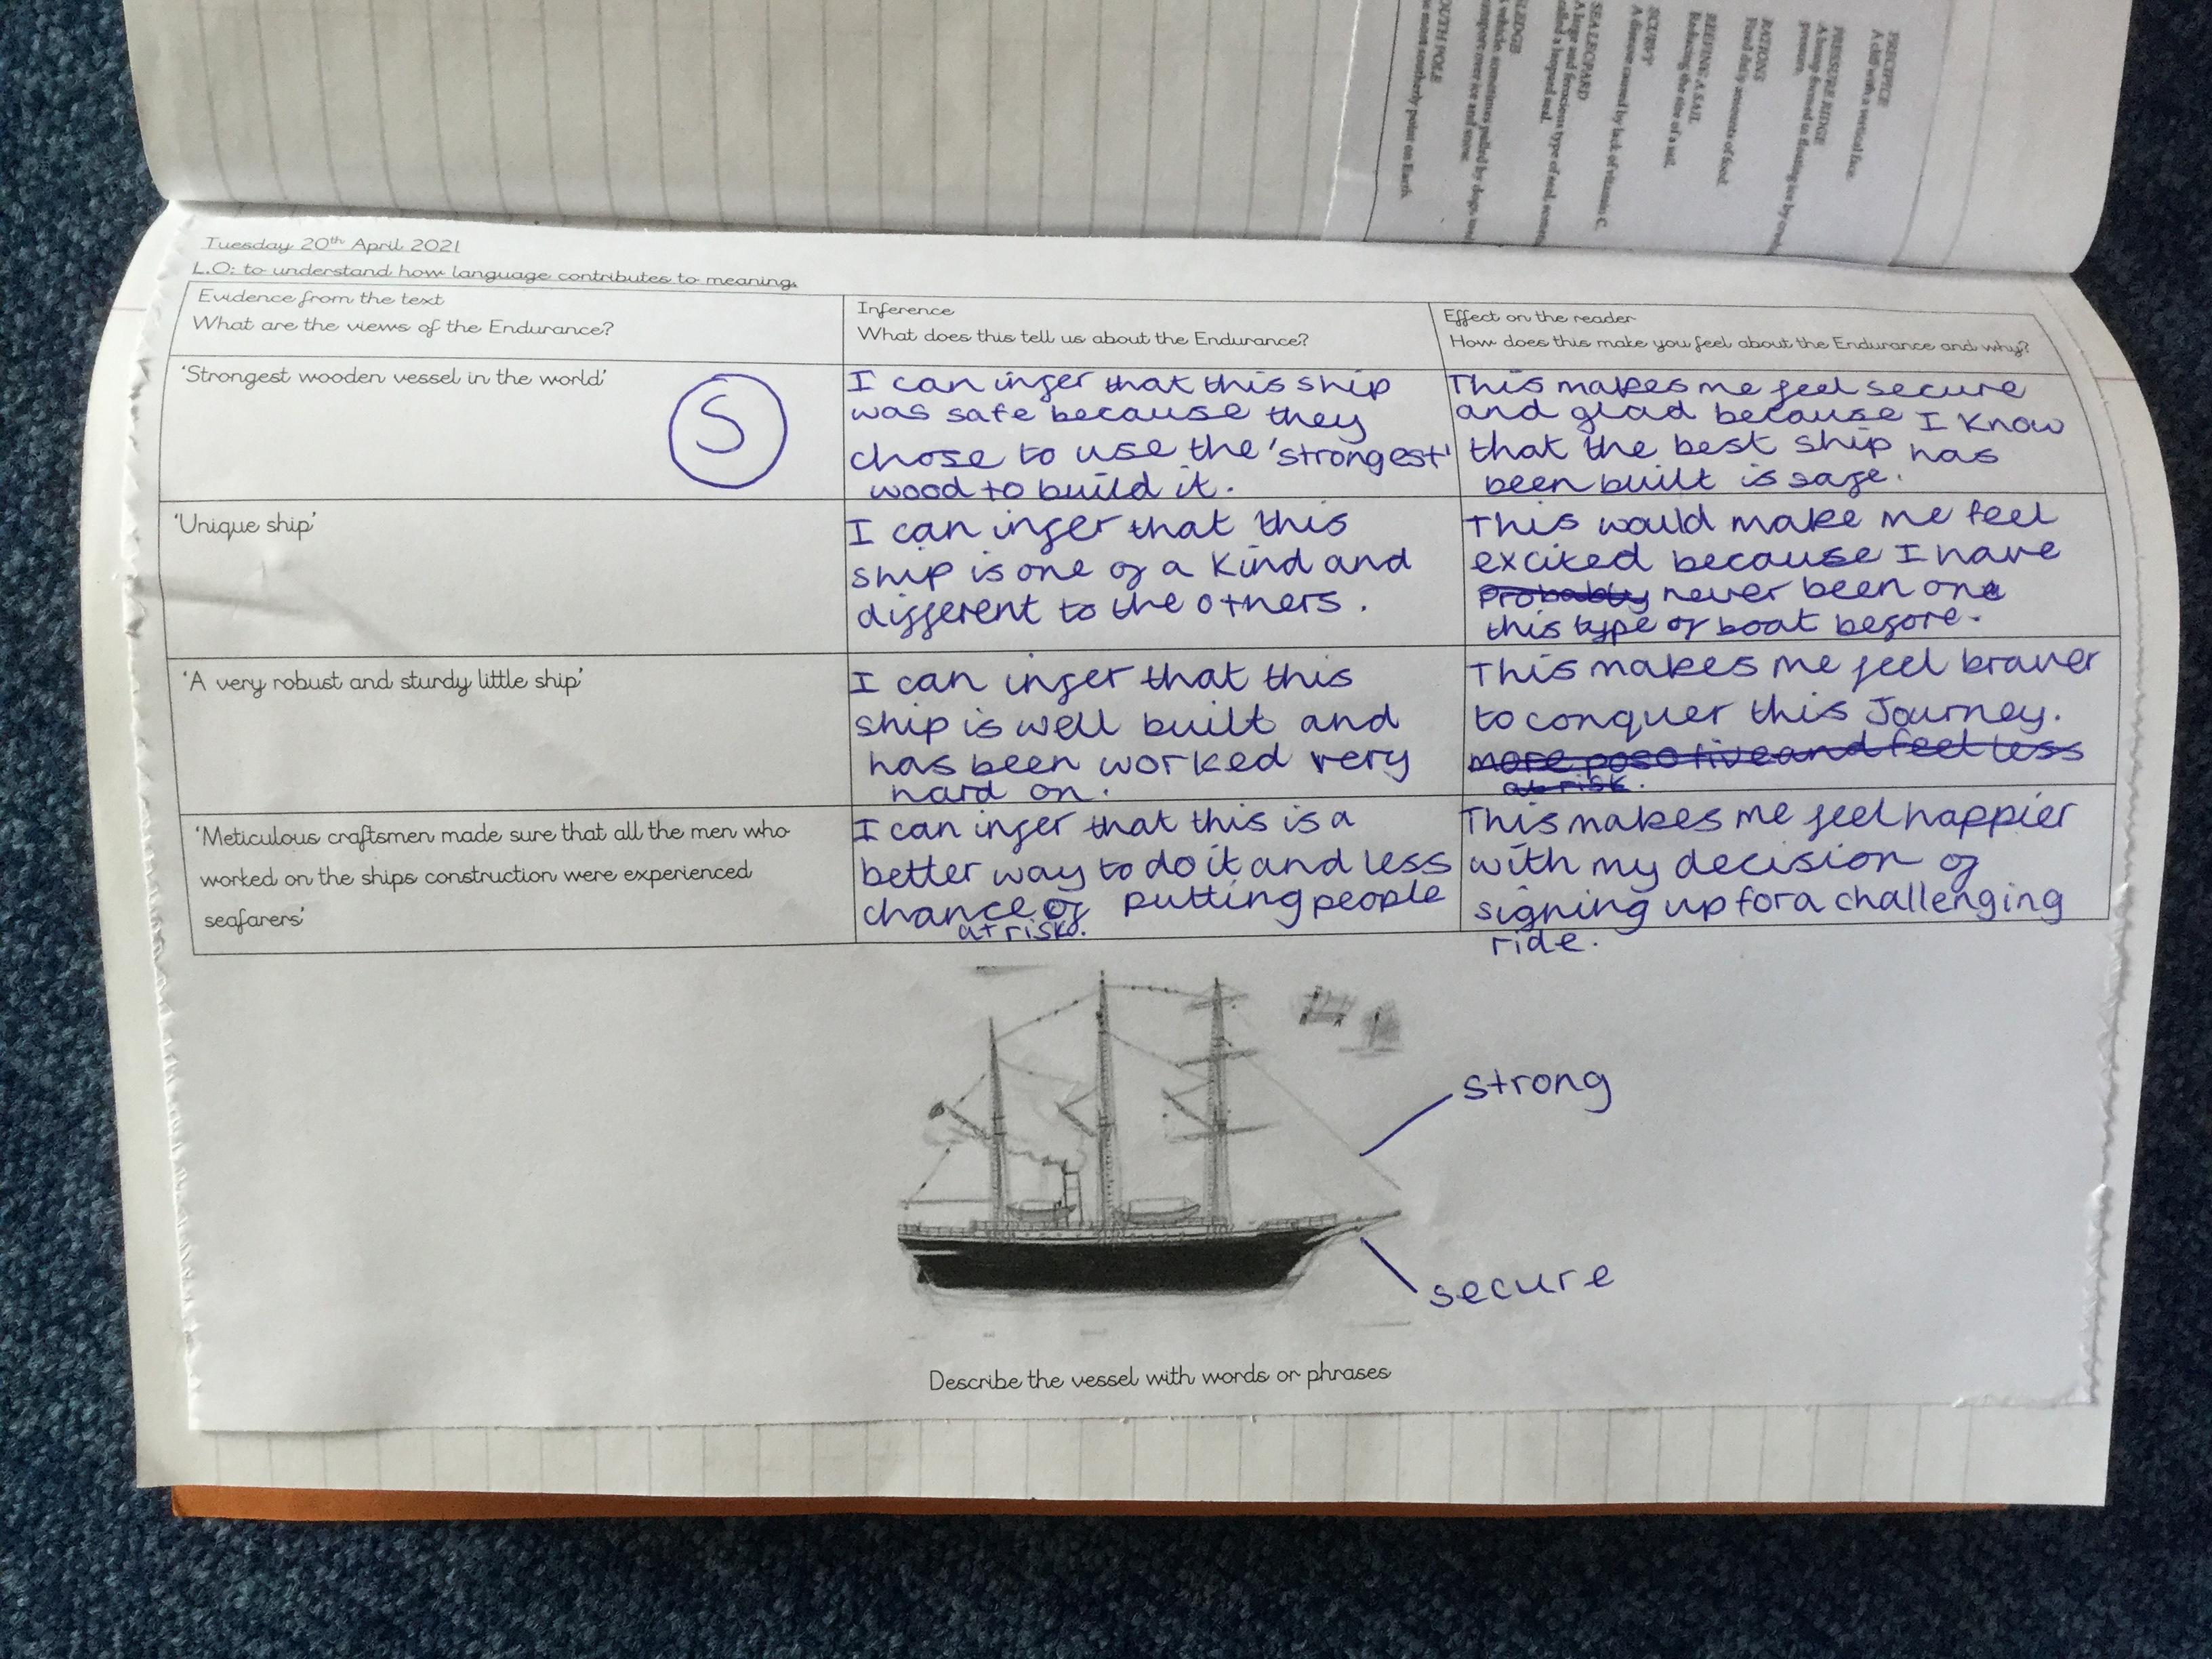 PRECIPICE
A cliff with a vertical face.
PRESSURE RIDGE
A hump formed in floating ice by
pressure.
RATIONS
Fixed daily amounts of food.
REEFING A SAIL
Reducing the size of a sail.
SCURVY
A disease caused by lack of vitamin C.
SEA LEOPARD
A large and ferocious type of seal,
called a leopard seal.
LEDGE
vehicle, sometimes pulled by dogs,
transport over ice and snow.
OUTH POLE
most southerly point on Earth.
Tuesday 20th April 2021
L.O: to understand how language contributes to meaning.
Evidence from the text
What are the views of the Endurance?
Inference
What does this tell us about the Endurance?
Effect on the reader
How does this make you feel about the Endurance and why?
'Strongest wooden vessel in the world'
S
I can infer that this ship
was safe because they
chose to use the 'strongest'
wood to build it.
This makes me feel secure
and glad because I know
that the best ship has
been built is safe.
'Unique ship'
I can infer that this
ship is one of a kind and
different to the others.
This would make me feel
excited because I have
probably never been one
this type of boat before.
'A very robust and sturdy little ship'
I can infer that this
ship is well built and
has been worked very
hard on.
This makes me feel braver
to conquer this Journey.
more posotive and feel less
at risk.
'Meticulous craftsmen made sure that all the men who
worked on the ships construction were experienced
seafarers'
I can infer that this is a
better way to do it and less
chance of putting people
at risk.
This makes me feel happier
with my decision of
signing up for a challenging
ride.
strong
secure
Describe the vessel with words or phrases